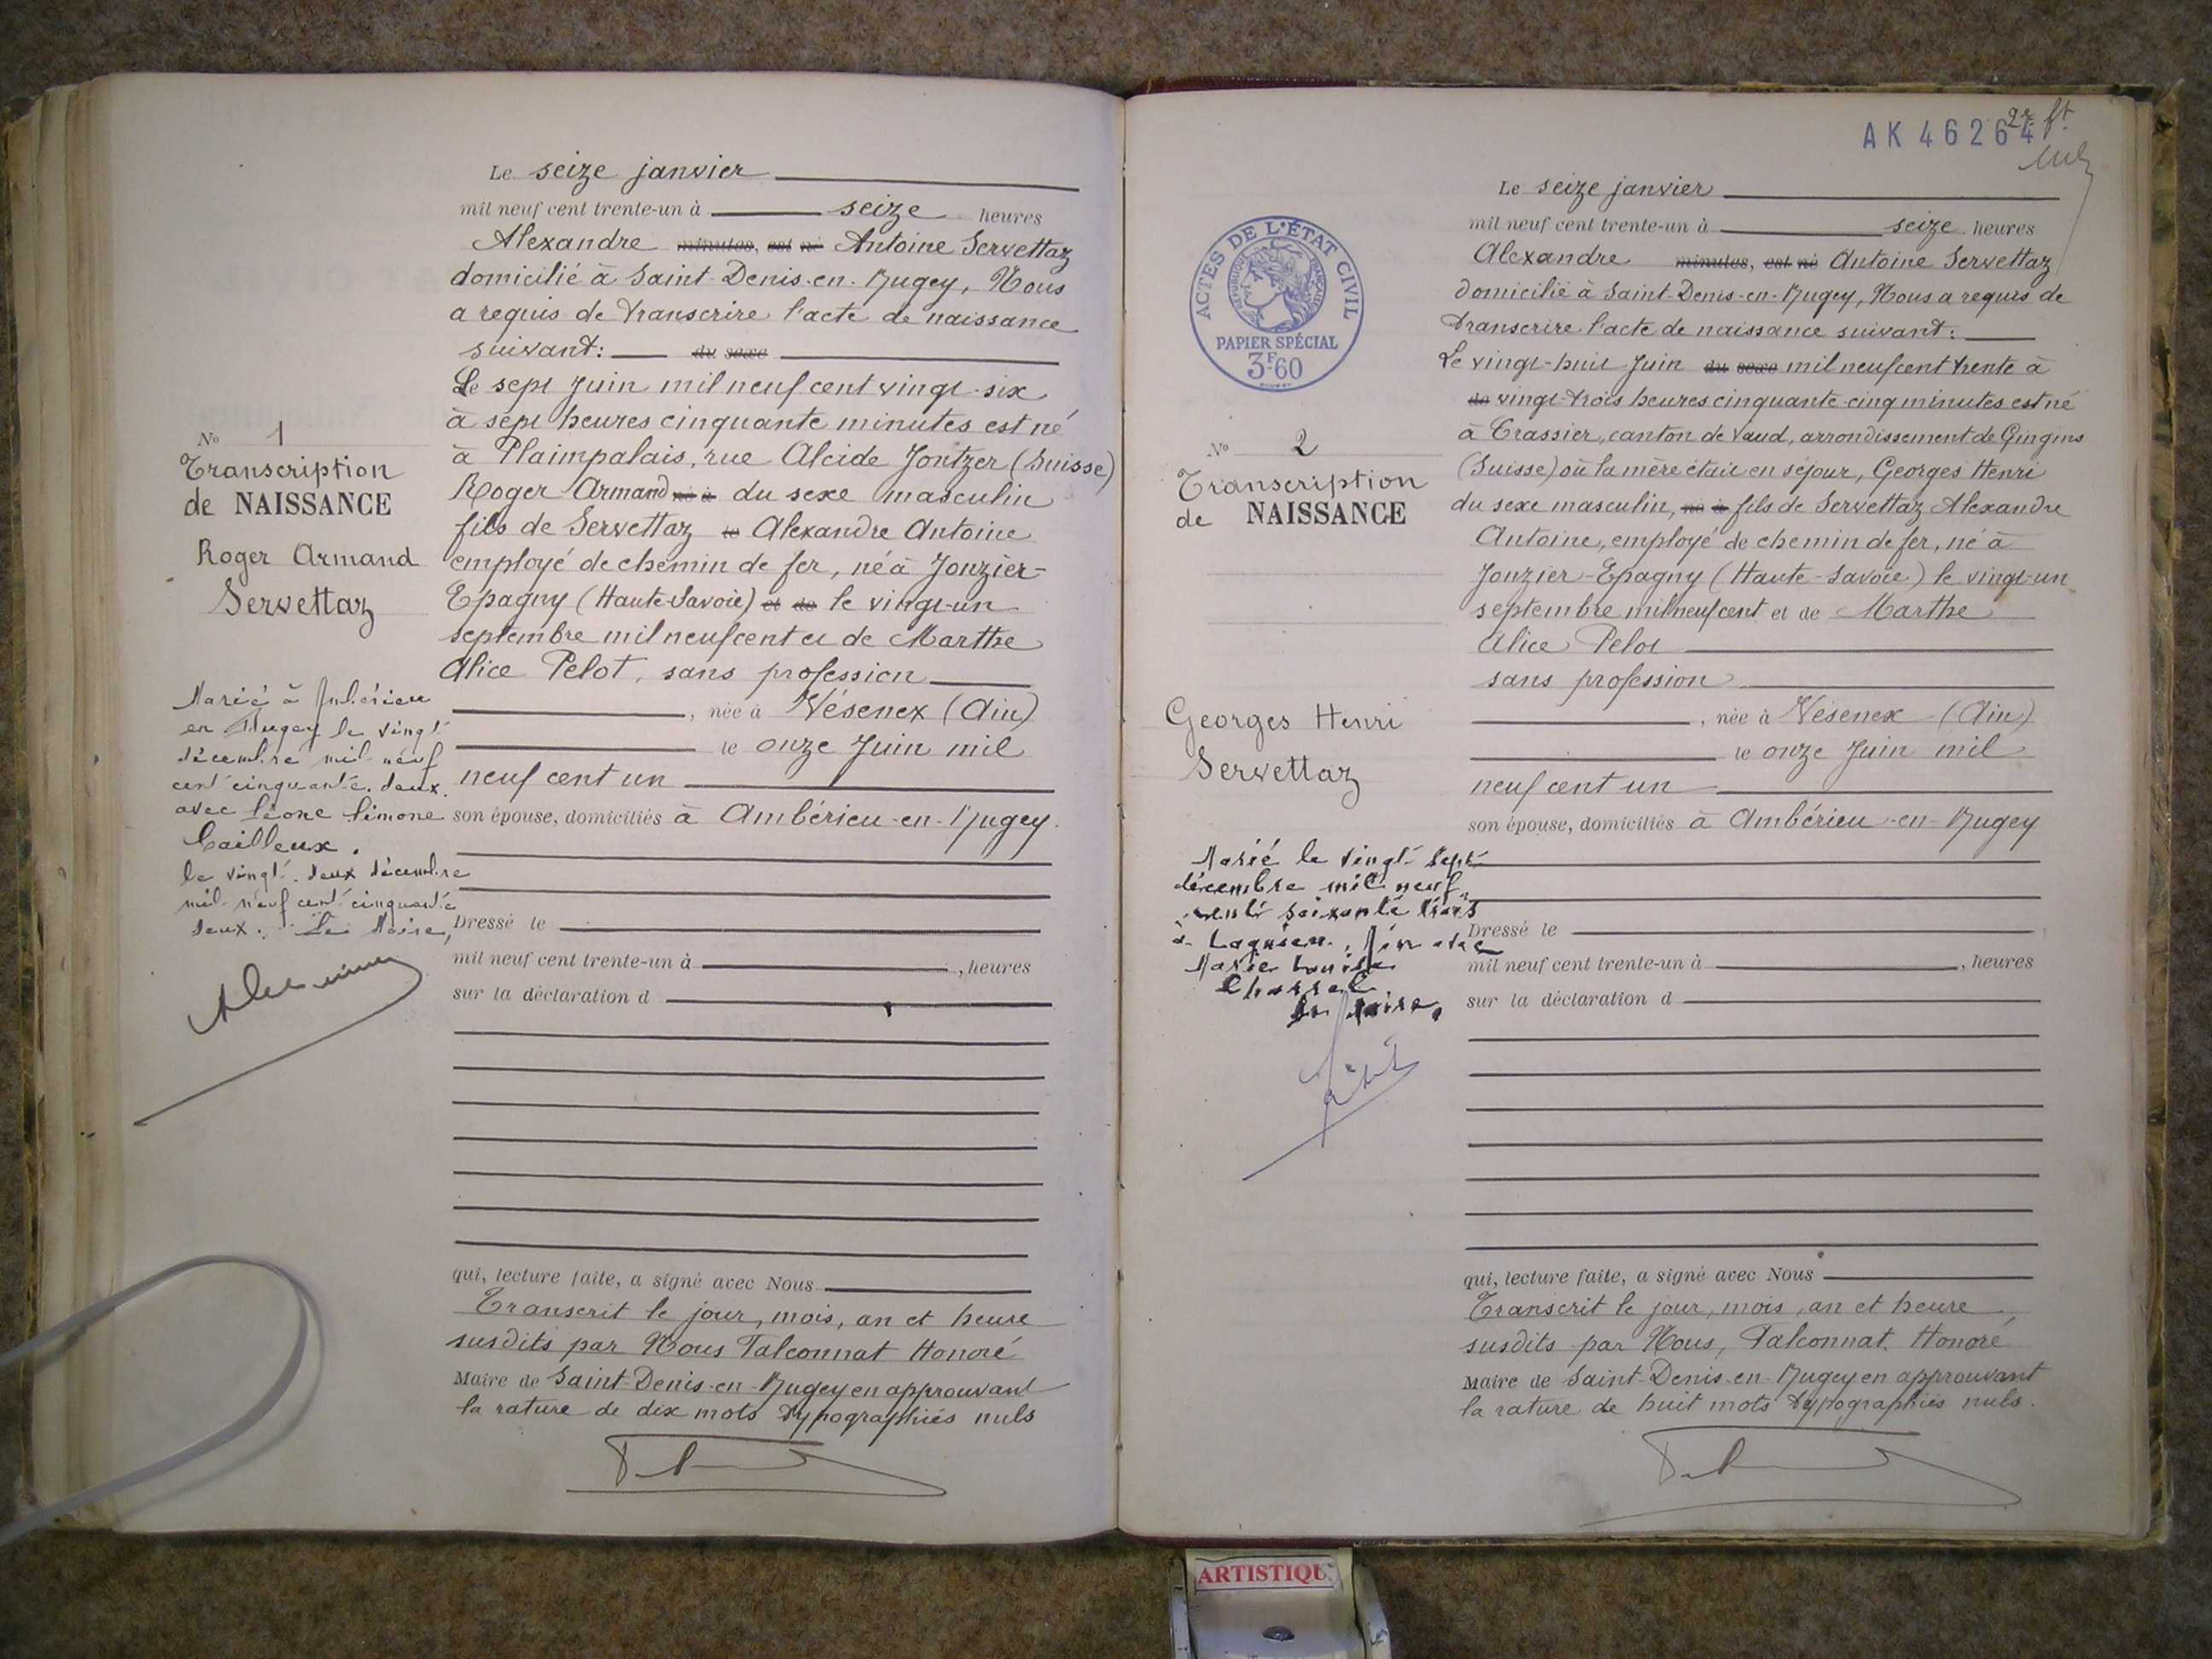 Le seize janvier
mil neuf cent trente-un à seize heures
Alexandre minutes, est né Antoine Servettaz
domicilié à Saint-Denis-en-Bugey, Nous
a requis de transcrire l'acte de naissance
suivant: du sexe
Le sept Juin mil neuf cent vingt-six
à sept heures cinquante minutes est né
à Plaimpalais, rue Alcide Jentzer (Suisse)
Roger Armand né à du sexe masculin
fils de Servettaz le Alexandre Antoine
employé de chemin de fer, né à Jonzier-
Epagny (Haute-Savoie) et de le vingt-un
septembre mil neuf cent et de Marthe
Alice Pelot, sans profession
, née à Vésenex (Ain)
le onze Juin mil
neuf cent un
son épouse, domiciliés à Ambérieu-en-Bugey.
Dressé le
mil neuf cent trente-un à , heures
sur la déclaration d
qui, lecture faite, a signé avec Nous
Transcrit le jour, mois, an et heure
susdits par Nous Falconnat Honoré
Maire de Saint-Denis-en-Bugey en approuvant
la rature de dix mots typographiés nuls
No 1
Transcription
de NAISSANCE
Roger Armand
Servettaz
Marié à Ambérieu
en Bugey le vingt
décembre mil neuf
cent cinquante-deux
avec Léone Simone
Cailleux.
le vingt-deux décembre
mil neuf cent cinquante
deux. Le Maire,
AK 46264
2e ft
ACTES DE L'ÉTAT CIVIL
RÉPUBLIQUE FRANÇAISE
PAPIER SPÉCIAL
3F60
No 2
Transcription
de NAISSANCE
Georges Henri
Servettaz
Marié le vingt sept
décembre mil neuf
cent soixante trois
à Lagnieu, Ain avec
Marie Louise
Le Maire,
Le seize janvier
mil neuf cent trente-un à seize heures
Alexandre minutes, est né Antoine Servettaz
domicilié à Saint-Denis-en-Bugey, Nous a requis de
transcrire l'acte de naissance suivant:
Le vingt-huit Juin du sexe mil neuf cent trente à
de vingt-trois heures cinquante-cinq minutes est né
à Crassier, canton de Vaud, arrondissement de Gingins
(Suisse) où la mère était en séjour, Georges Henri
du sexe masculin, né à fils de Servettaz Alexandre
Antoine, employé de chemin de fer, né à
Jonzier-Epagny (Haute-Savoie) le vingt-un
septembre mil neuf cent et de Marthe
Alice Pelot
sans profession
, née à Vésenex (Ain)
le onze Juin mil
neuf cent un
son épouse, domiciliés à Ambérieu-en-Bugey
Dressé le
mil neuf cent trente-un à , heures
sur la déclaration d
qui, lecture faite, a signé avec Nous
Transcrit le jour, mois, an et heure
susdits par Nous, Falconnat Honoré
Maire de Saint-Denis-en-Bugey en approuvant
la rature de huit mots typographiés nuls.
ARTISTIQU